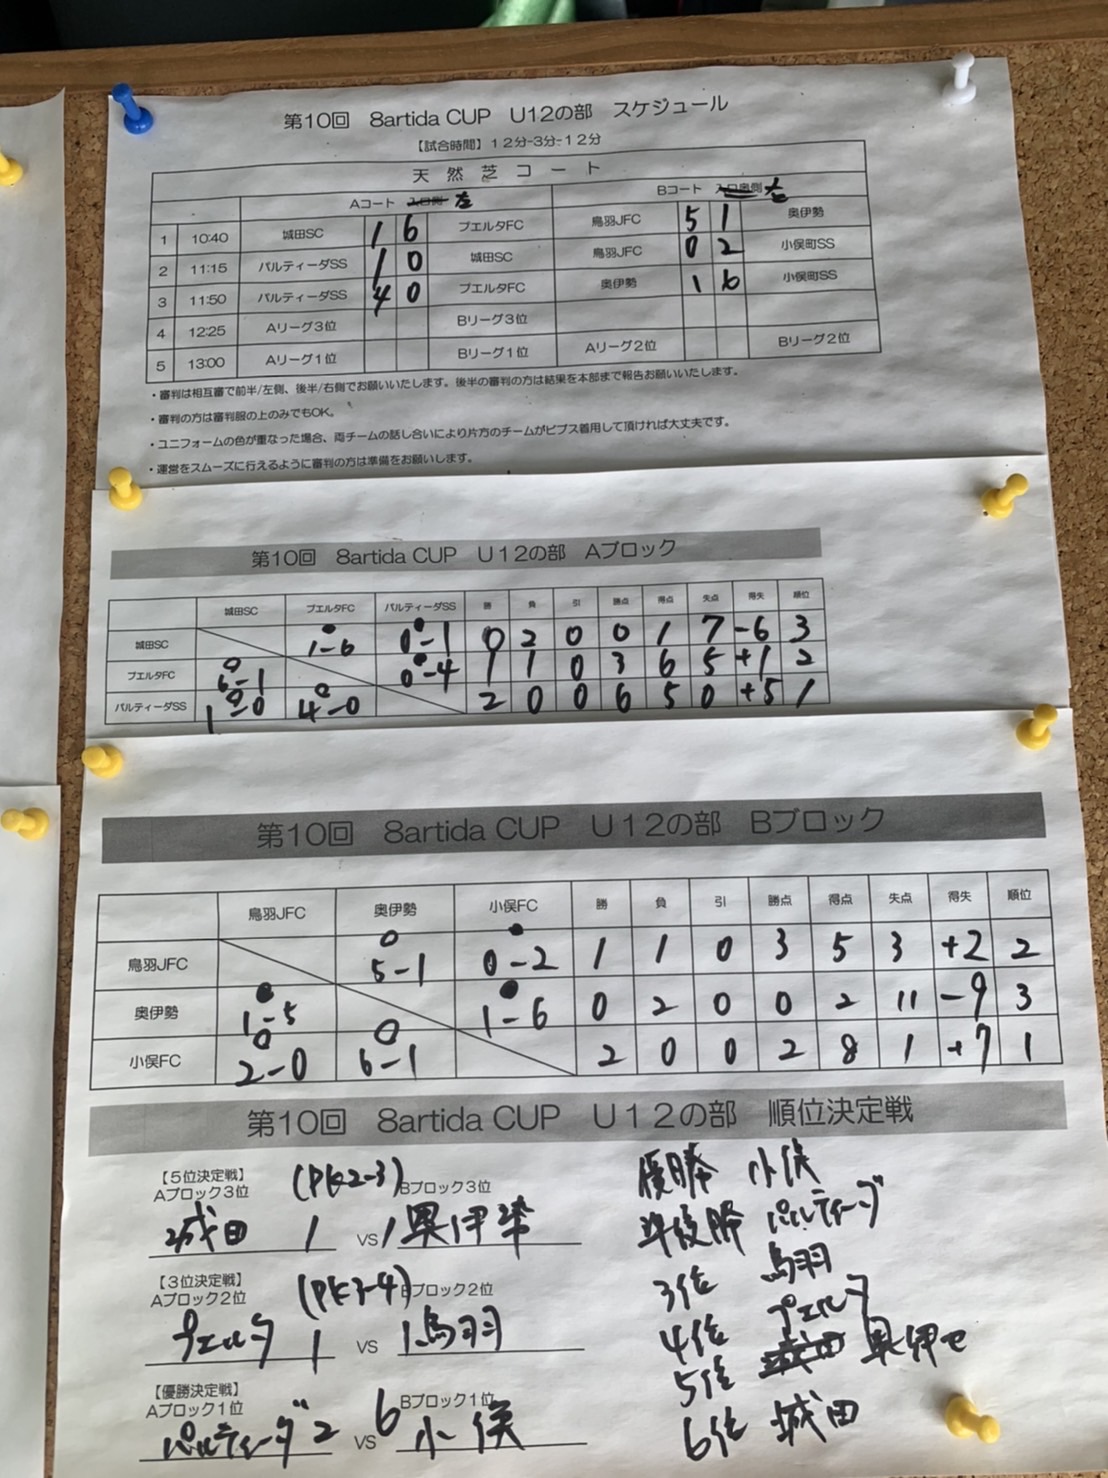 第10回 8artida CUP U12の部 スケジュール
【試合時間】12分-3分-12分
天然芝コート
Aコート 入口側 左 Bコート 入口奥側 右
1 10:40 城田SC 1 6 プエルタFC 鳥羽JFC 5 1 奥伊勢
2 11:15 パルティーダSS 1 0 城田SC 鳥羽JFC 0 2 小俣町SS
3 11:50 パルティーダSS 4 0 プエルタFC 奥伊勢 1 6 小俣町SS
4 12:25 Aリーグ3位 Bリーグ3位
5 13:00 Aリーグ1位 Bリーグ1位 Aリーグ2位 Bリーグ2位
・審判は相互審で前半/左側、後半/右側でお願いいたします。後半の審判の方は結果を本部まで報告お願いいたします。
・審判の方は審判服の上のみでもOK。
・ユニフォームの色が重なった場合、両チームの話し合いにより片方のチームがビブス着用して頂ければ大丈夫です。
・運営をスムーズに行えるように審判の方は準備をお願いします。
第10回 8artida CUP U12の部 Aブロック
城田SC プエルタFC パルティーダSS 勝 負 引 勝点 得点 失点 得失 順位
城田SC ●1-6 ●0-1 0 2 0 0 1 7 -6 3
プエルタFC ○6-1 ●0-4 1 1 0 3 6 5 +1 2
パルティーダSS ○1-0 ○4-0 2 0 0 6 5 0 +5 1
第10回 8artida CUP U12の部 Bブロック
鳥羽JFC 奥伊勢 小俣FC 勝 負 引 勝点 得点 失点 得失 順位
鳥羽JFC ○5-1 ●0-2 1 1 0 3 5 3 +2 2
奥伊勢 ●1-5 ●1-6 0 2 0 0 2 11 -9 3
小俣FC ○2-0 ○6-1 2 0 0 2 8 1 +7 1
第10回 8artida CUP U12の部 順位決定戦
【5位決定戦】
Aブロック3位 (PK2-3) Bブロック3位
城田 1 vs 1 奥伊勢
【3位決定戦】
Aブロック2位 (PK3-4) Bブロック2位
プエルタ 1 vs 1 鳥羽
【優勝決定戦】
Aブロック1位 Bブロック1位
パルティーダ 2 vs 6 小俣
優勝 小俣
準優勝 パルティーダ
3位 鳥羽
4位 プエルタ
5位 城田 奥伊せ
6位 城田